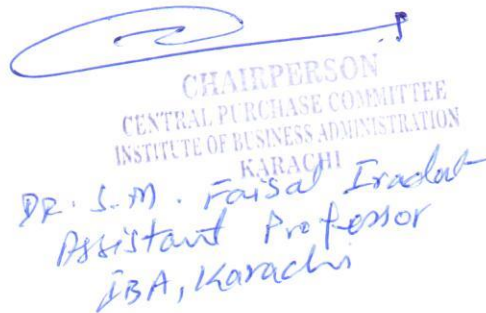 CHAIRPERSON
CENTRAL PURCHASE COMMITTEE
INSTITUTE OF BUSINESS ADMINISTRATION
KARACHI
DR. S.M. Faisal Iradat
Assistant Professor
IBA, Karachi